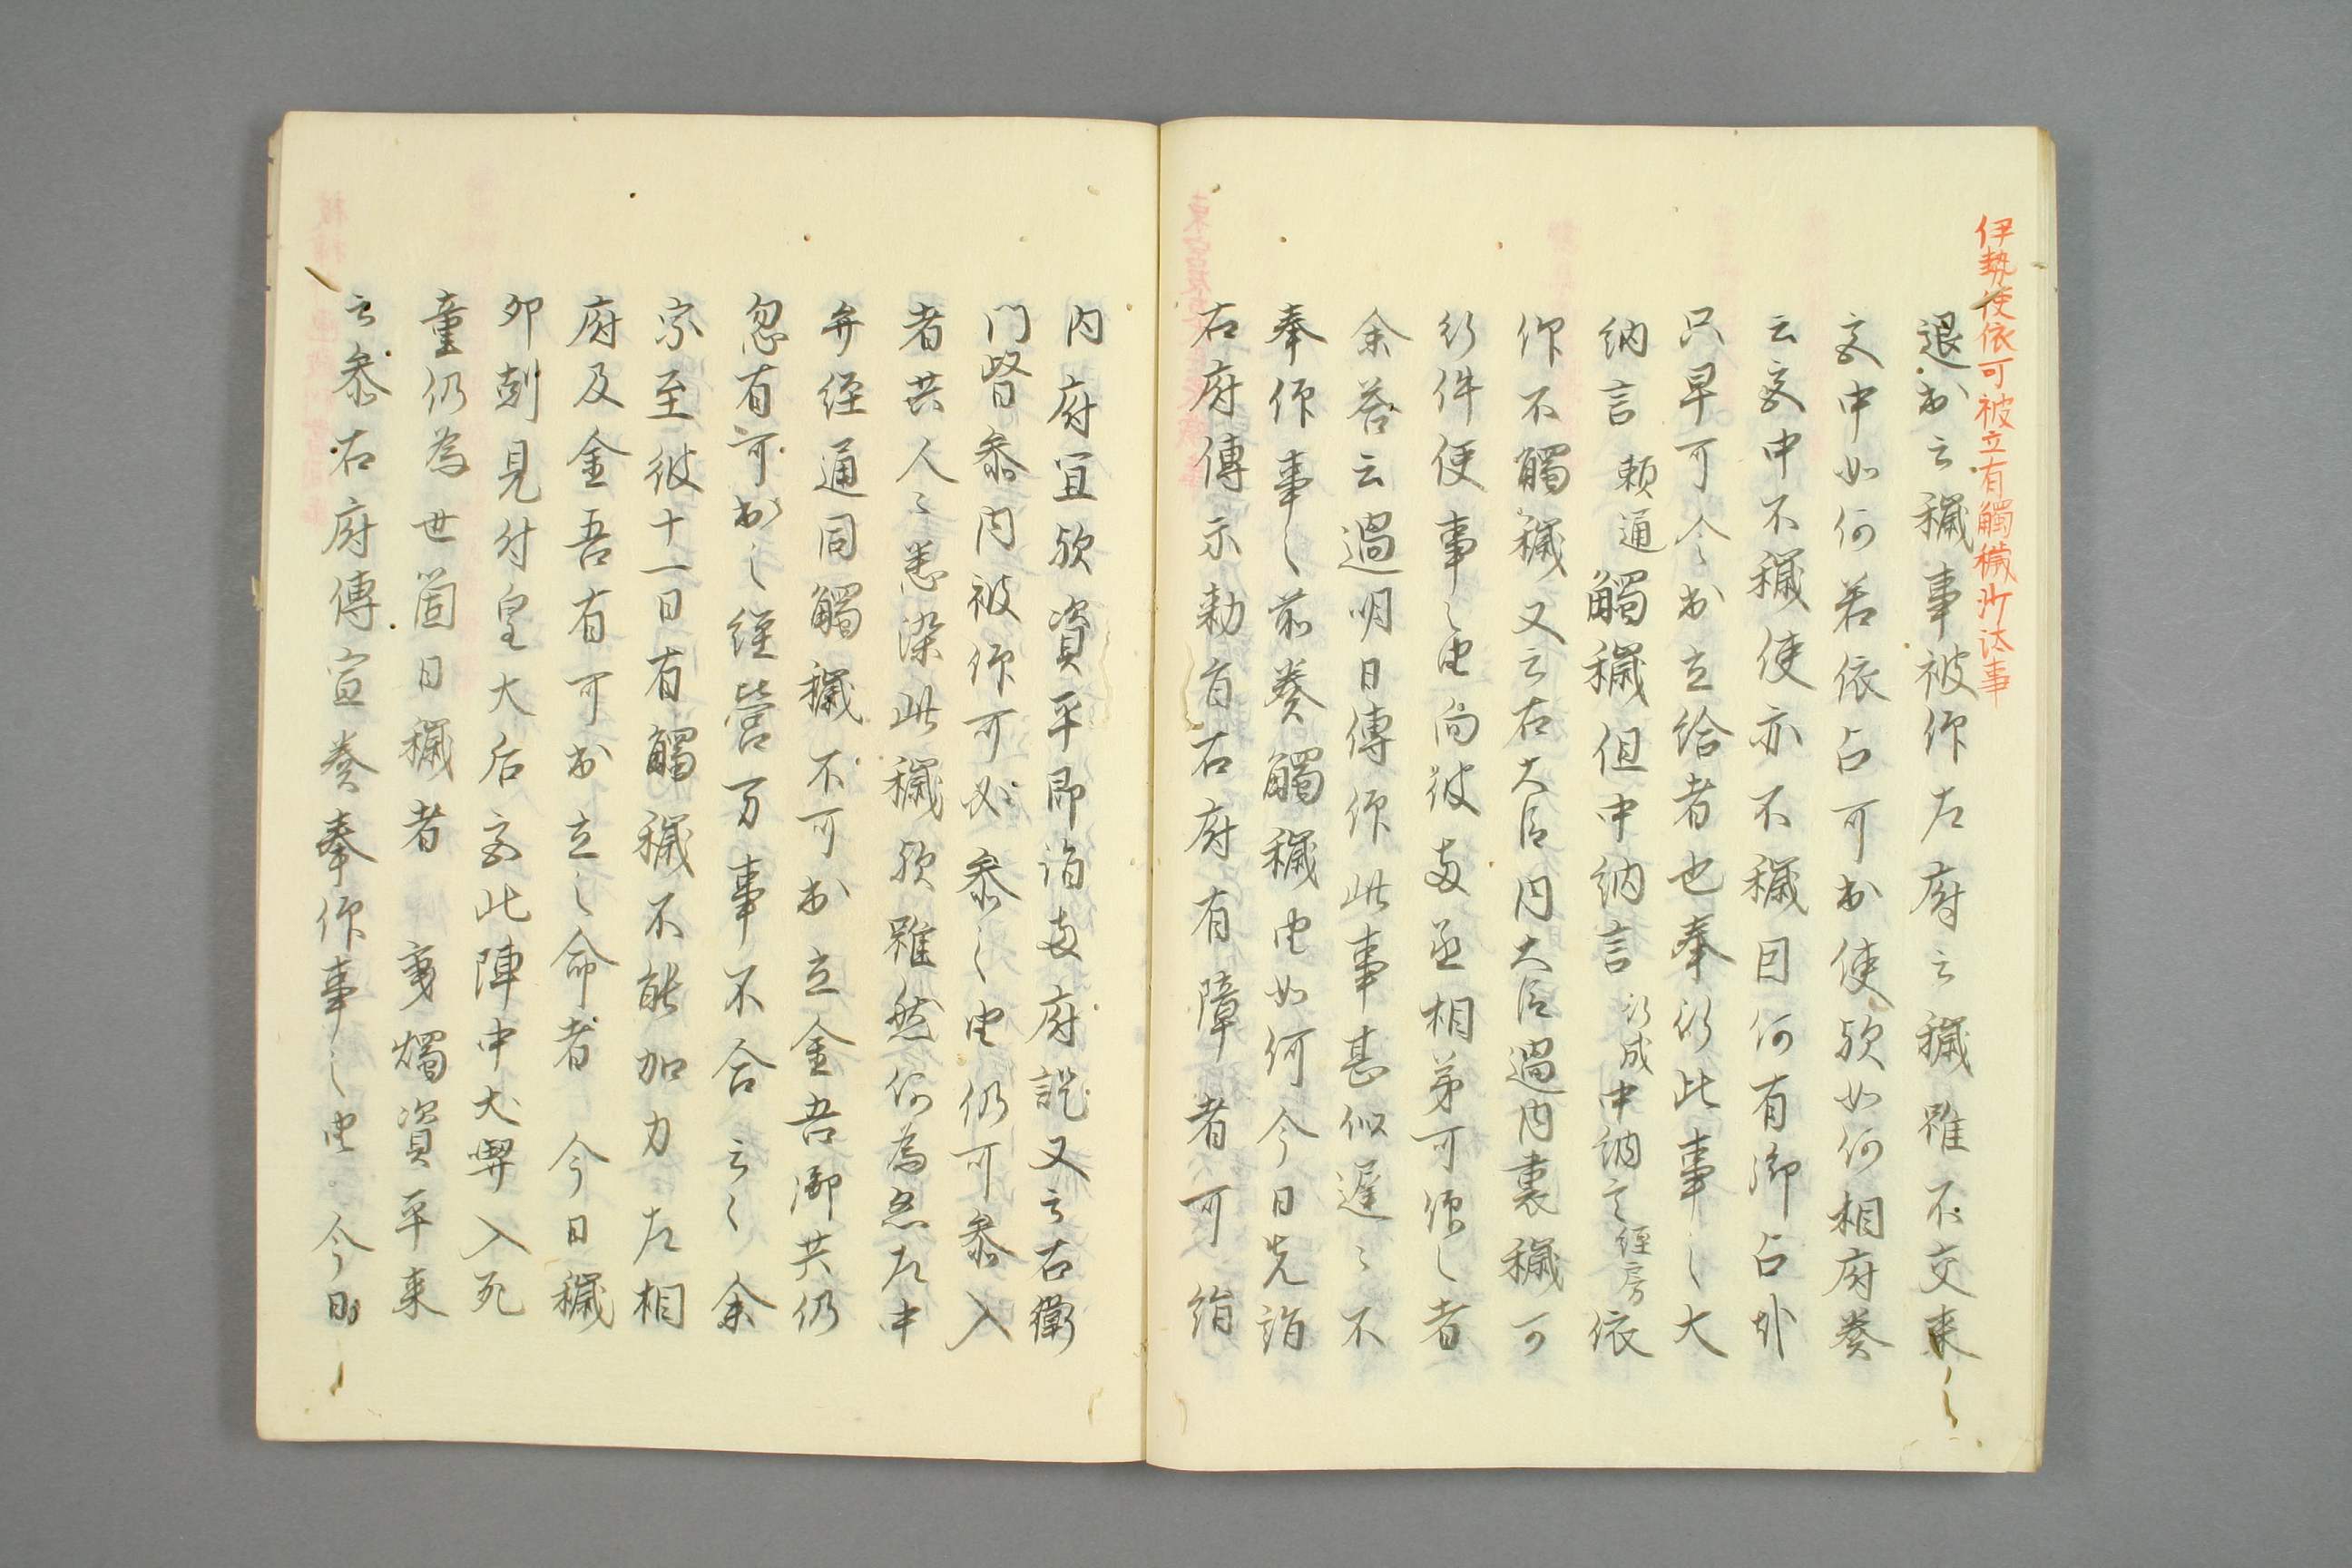 伊勢使依可被立有觸穢沙汰事
退出云穢事被仰左府云穢雖不交来〻
宮中如何若依占可出使欤如何相府奏
云宮中不穢使亦不穢因何有御占卦
只早可令出立給者也奉行此事之大
納言頼通觸穢但中納言行成中納言經房依
仰不觸穢又云右大臣内大臣過内裏穢可
行件使事之由向彼両丞相第可傳之者
余答云過明日傳仰此事甚似遅〻不
奉仰事之前奏觸穢由如何今日先詣
右府傳示勅旨右府有障者可詣
内府宜欤資平即詣両府説又云右衛
門督参内被仰可必参之由仍可参入
者共人〻悉染此穢欤雖然何為忽左中
弁經通同觸穢不可出立金吾御共仍
忽有可出之經營万事不合云〻余
家至彼十一日有觸穢不能加力左相
府及金吾有可出立之命者今日穢
卯剋見付皇大后宮此陣中犬喫入死
童仍為世箇日穢者 秉燭資平来
云参右府傳宣奏奉仰事之由今明〻